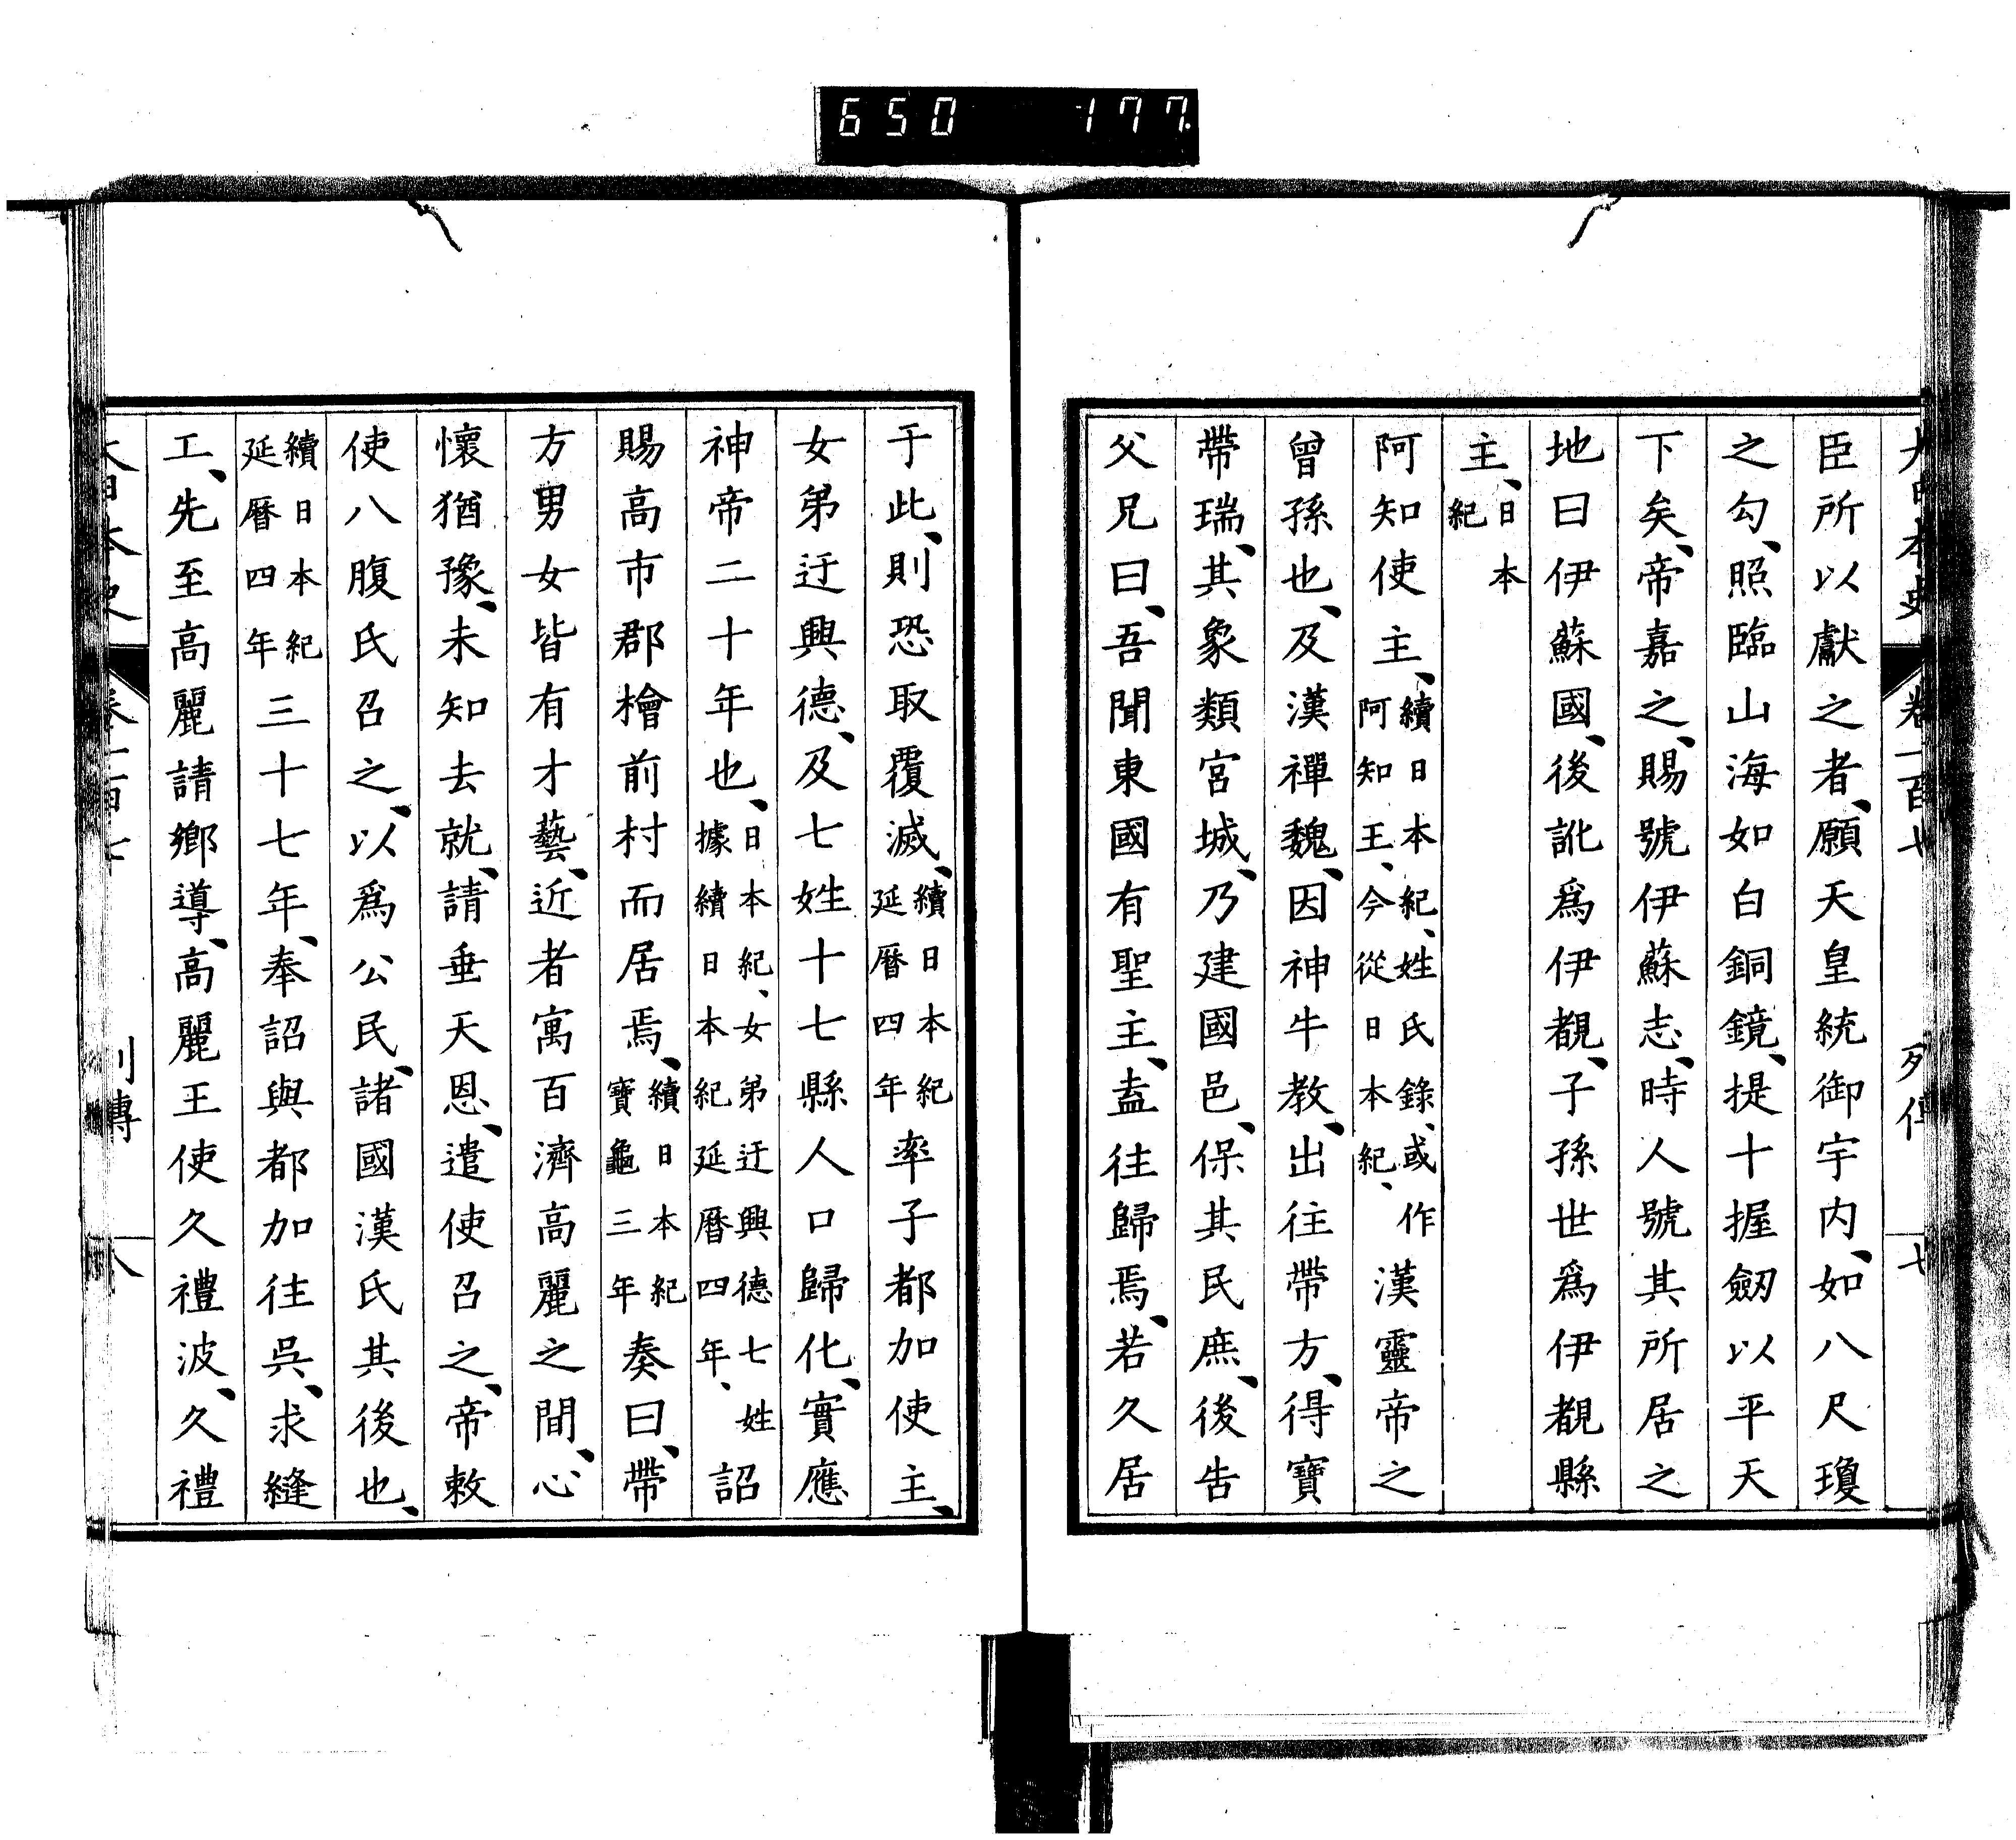 650 177
大日本史 卷一百七 列傳 七
臣所以獻之者、願天皇統御宇内、如八尺瓊
之勾、照臨山海如白銅鏡、提十握劒以平天
下矣、帝嘉之、賜號伊蘇志、時人號其所居之
地曰伊蘇國、後訛爲伊覩、子孫世爲伊覩縣
主、日本紀
阿知使主、續日本紀、姓氏錄、或作阿知王、今從日本紀、漢靈帝之
曾孫也、及漢禪魏、因神牛教、出往帶方、得寶
帶瑞、其象類宮城、乃建國邑、保其民庶、後告
父兄曰、吾聞東國有聖主、盍往歸焉、若久居
于此、則恐取覆滅、續日本紀延曆四年率子都加使主、
女弟迂興德、及七姓十七縣人口歸化、實應
神帝二十年也、日本紀、女弟迂興德七姓據續日本紀延曆四年、詔
賜高市郡檜前村而居焉、續日本紀寶龜三年奏曰、帶
方男女皆有才藝、近者寓百濟高麗之間、心
懷猶豫、未知去就、請垂天恩、遣使召之、帝敕
使八腹氏召之、以爲公民、諸國漢氏其後也、
續日本紀延曆四年三十七年、奉詔與都加往吳、求縫
工、先至高麗請鄉導、高麗王使久禮波、久禮
大日本史 卷一百七 列傳 八